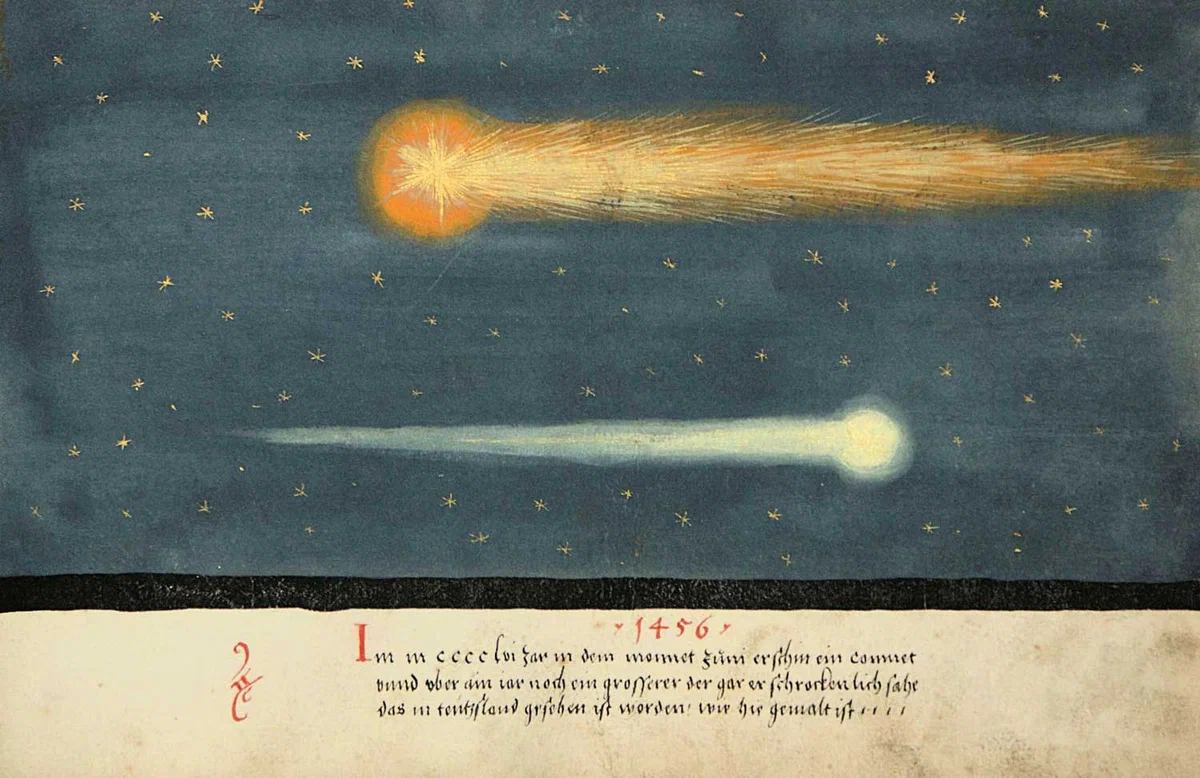 1456
Im m cccc lvi Jar in dem monnet Juni erschin ein commet
vnnd vber ain iar noch ein grosserer der gar erschrockenlich sahe
das in teutsland gesehen ist worden: wie hie gemalt ist